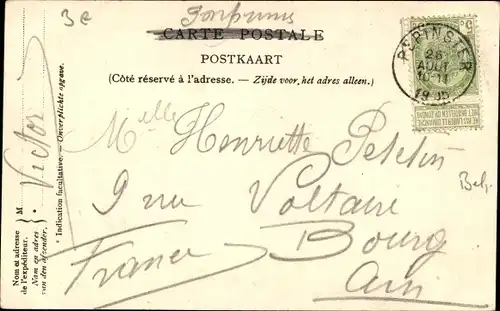 3e
CARTE POSTALE
POSTKAART
(Côté réservé à l'adresse. — Zijde voor het adres alleen.)
PEPINSTER
26
AOUT
10-11
5
NE PAS LIVRER LE DIMANCHE
NIET BESTELLEN OP ZONDAG
Melle Henriette
9 rue Voltaire
Bourg
Ain
France
Belg.
Victor
* Indication facultative. — Onverplichte opgave.
Nom et adresse
de l'expéditeur.
Naam en adres
van den afzender.
M